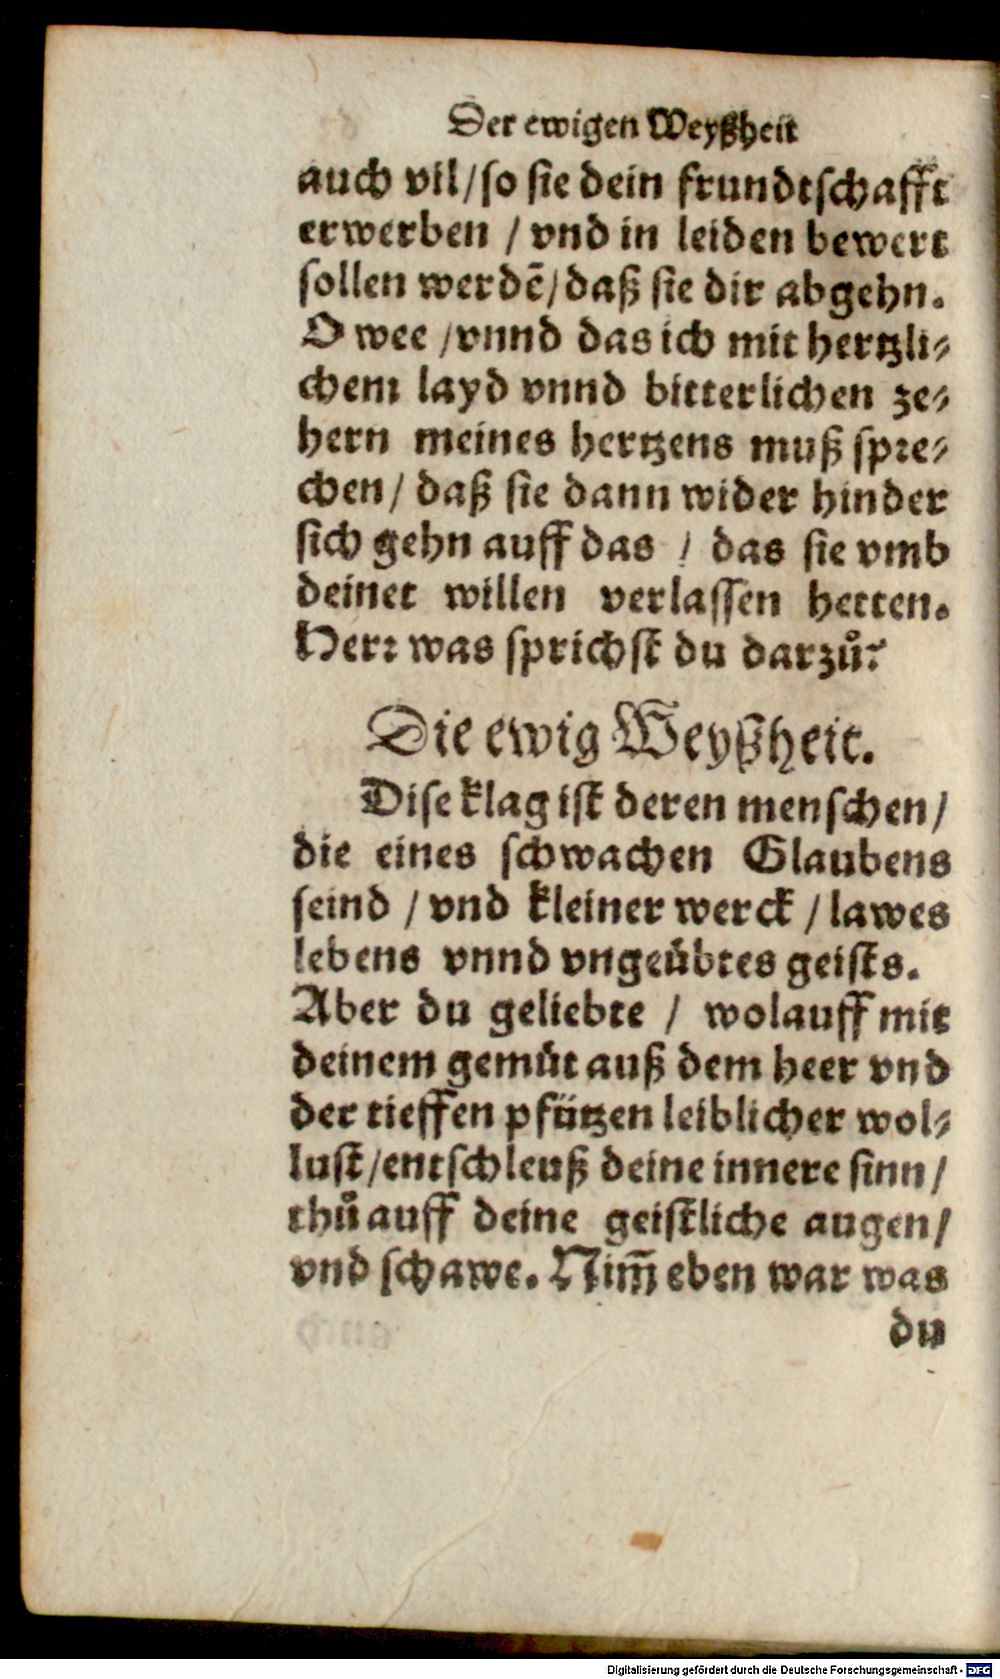 Der ewigen Weyßheit
auch vil/so sie dein frundtschafft
erwerben / vnd in leiden bewert
sollen werdẽ/daß sie dir abgehn.
O wee /vnnd das ich mit hertzli⸗
chem layd vnnd bitterlichen ze⸗
hern meines hertzens muß spre⸗
chen/ daß sie dann wider hinder
sich gehn auff das / das sie vmb
deinet willen verlassen hetten.
Herr was sprichst du darzů?
Die ewig Weyßheit.
Dise klag ist deren menschen/
die eines schwachen Glaubens
seind / vnd kleiner werck / lawes
lebens vnnd vngeübtes geists.
Aber du geliebte / wolauff mit
deinem gemüt auß dem heer vnd
der tieffen pfützen leiblicher wol⸗
lust/entschleuß deine innere sinn/
thů auff deine geistliche augen/
vnd schawe. Nim̃ eben war was
du
Digitalisierung gefördert durch die Deutsche Forschungsgemeinschaft - DFG